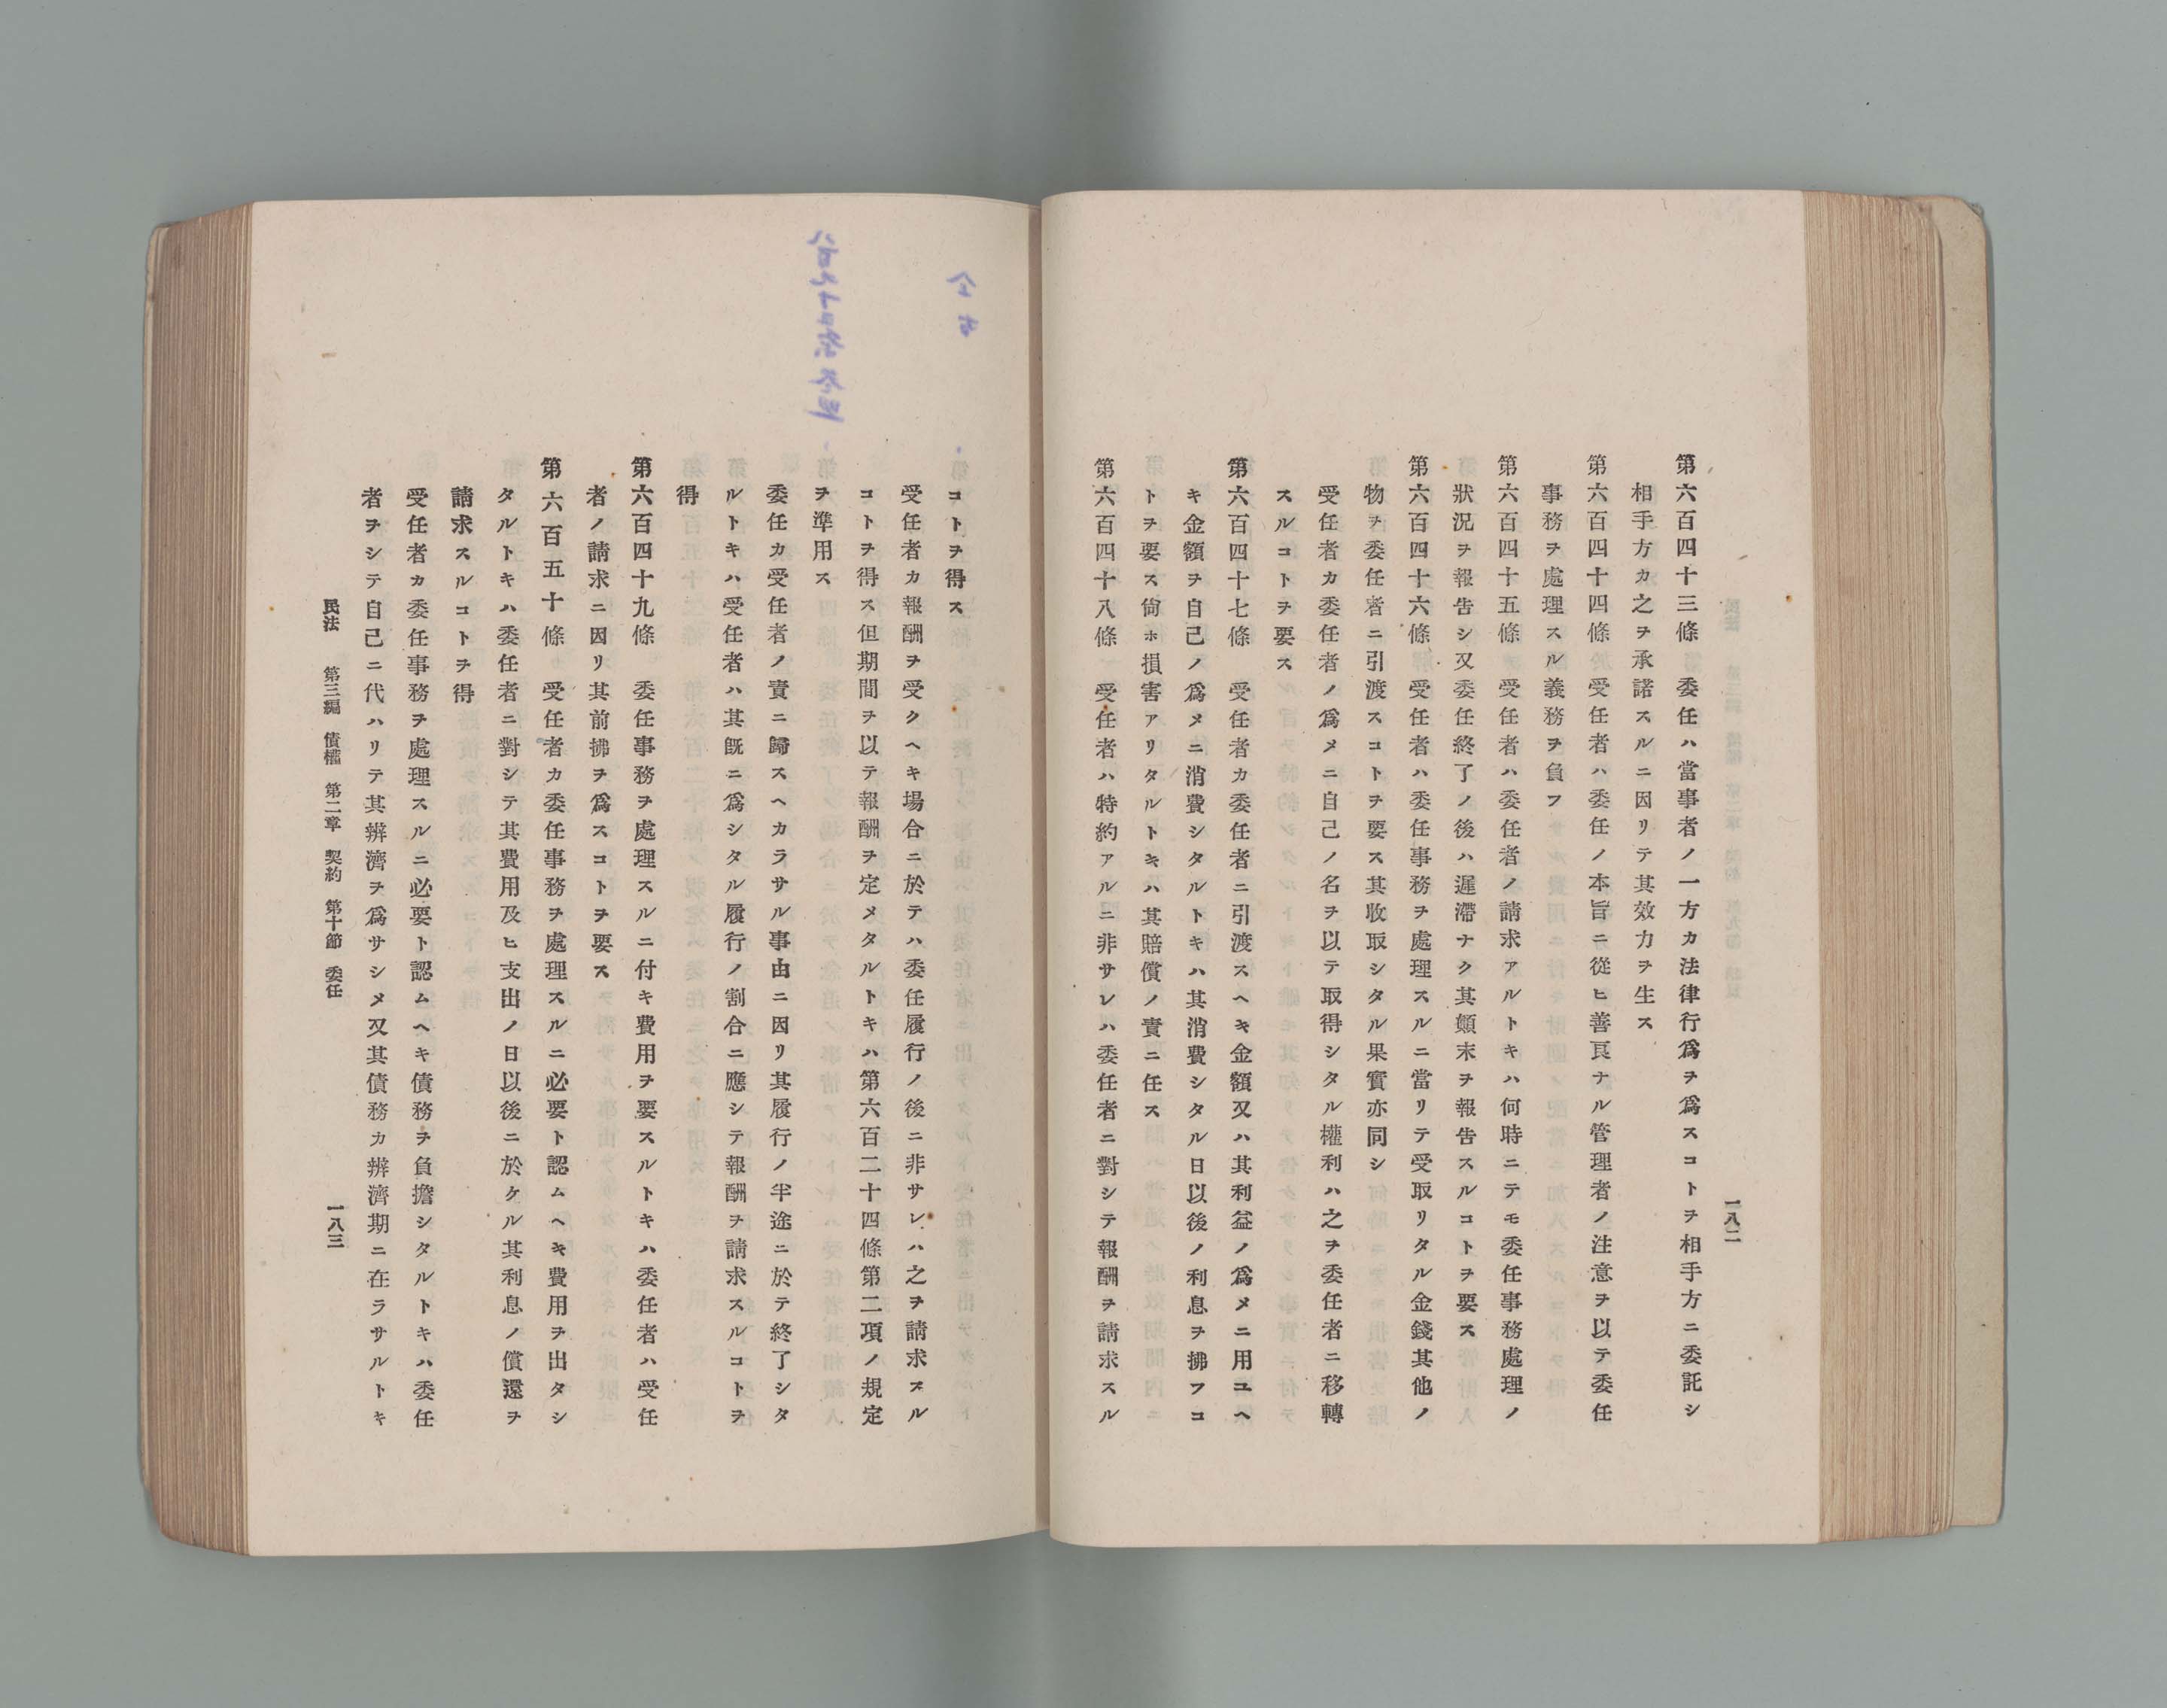 一八二
第六百四十三條　委任ハ當事者ノ一方カ法律行爲ヲ爲スコトヲ相手方ニ委託シ
相手方カ之ヲ承諾スルニ因リテ其效力ヲ生ス
第六百四十四條　受任者ハ委任ノ本旨ニ從ヒ善良ナル管理者ノ注意ヲ以テ委任
事務ヲ處理スル義務ヲ負フ
第六百四十五條　受任者ハ委任者ノ請求アルトキハ何時ニテモ委任事務處理ノ
狀況ヲ報告シ又委任終了ノ後ハ遲滯ナク其顚末ヲ報告スルコトヲ要ス
第六百四十六條　受任者ハ委任事務ヲ處理スルニ當リテ受取リタル金錢其他ノ
物ヲ委任者ニ引渡スコトヲ要ス其收取シタル果實亦同シ
受任者カ委任者ノ爲メニ自己ノ名ヲ以テ取得シタル權利ハ之ヲ委任者ニ移轉
スルコトヲ要ス
第六百四十七條　受任者カ委任者ニ引渡スヘキ金額又ハ其利益ノ爲メニ用ユヘ
キ金額ヲ自己ノ爲メニ消費シタルトキハ其消費シタル日以後ノ利息ヲ拂フコ
トヲ要ス尙ホ損害アリタルトキハ其賠償ノ責ニ任ス
第六百四十八條　受任者ハ特約アルニ非サレハ委任者ニ對シテ報酬ヲ請求スル
コトヲ得ス
受任者カ報酬ヲ受クヘキ場合ニ於テハ委任履行ノ後ニ非サレハ之ヲ請求スル
コトヲ得ス但期間ヲ以テ報酬ヲ定メタルトキハ第六百二十四條第二項ノ規定
ヲ準用ス
委任カ受任者ノ責ニ歸スヘカラサル事由ニ因リ其履行ノ半途ニ於テ終了シタ
ルトキハ受任者ハ其旣ニ爲シタル履行ノ割合ニ應シテ報酬ヲ請求スルコトヲ
得
第六百四十九條　委任事務ヲ處理スルニ付キ費用ヲ要スルトキハ委任者ハ受任
者ノ請求ニ因リ其前拂ヲ爲スコトヲ要ス
第六百五十條　受任者カ委任事務ヲ處理スルニ必要ト認ムヘキ費用ヲ出タシ
タルトキハ委任者ニ對シテ其費用及ヒ支出ノ日以後ニ於ケル其利息ノ償還ヲ
請求スルコトヲ得
受任者カ委任事務ヲ處理スルニ必要ト認ムヘキ債務ヲ負擔シタルトキハ委任
者ヲシテ自己ニ代ハリテ其辨濟ヲ爲サシメ又其債務カ辨濟期ニ在ラサルトキ
民法　第三編　債權　第二章　契約　第十節　委任
一八三